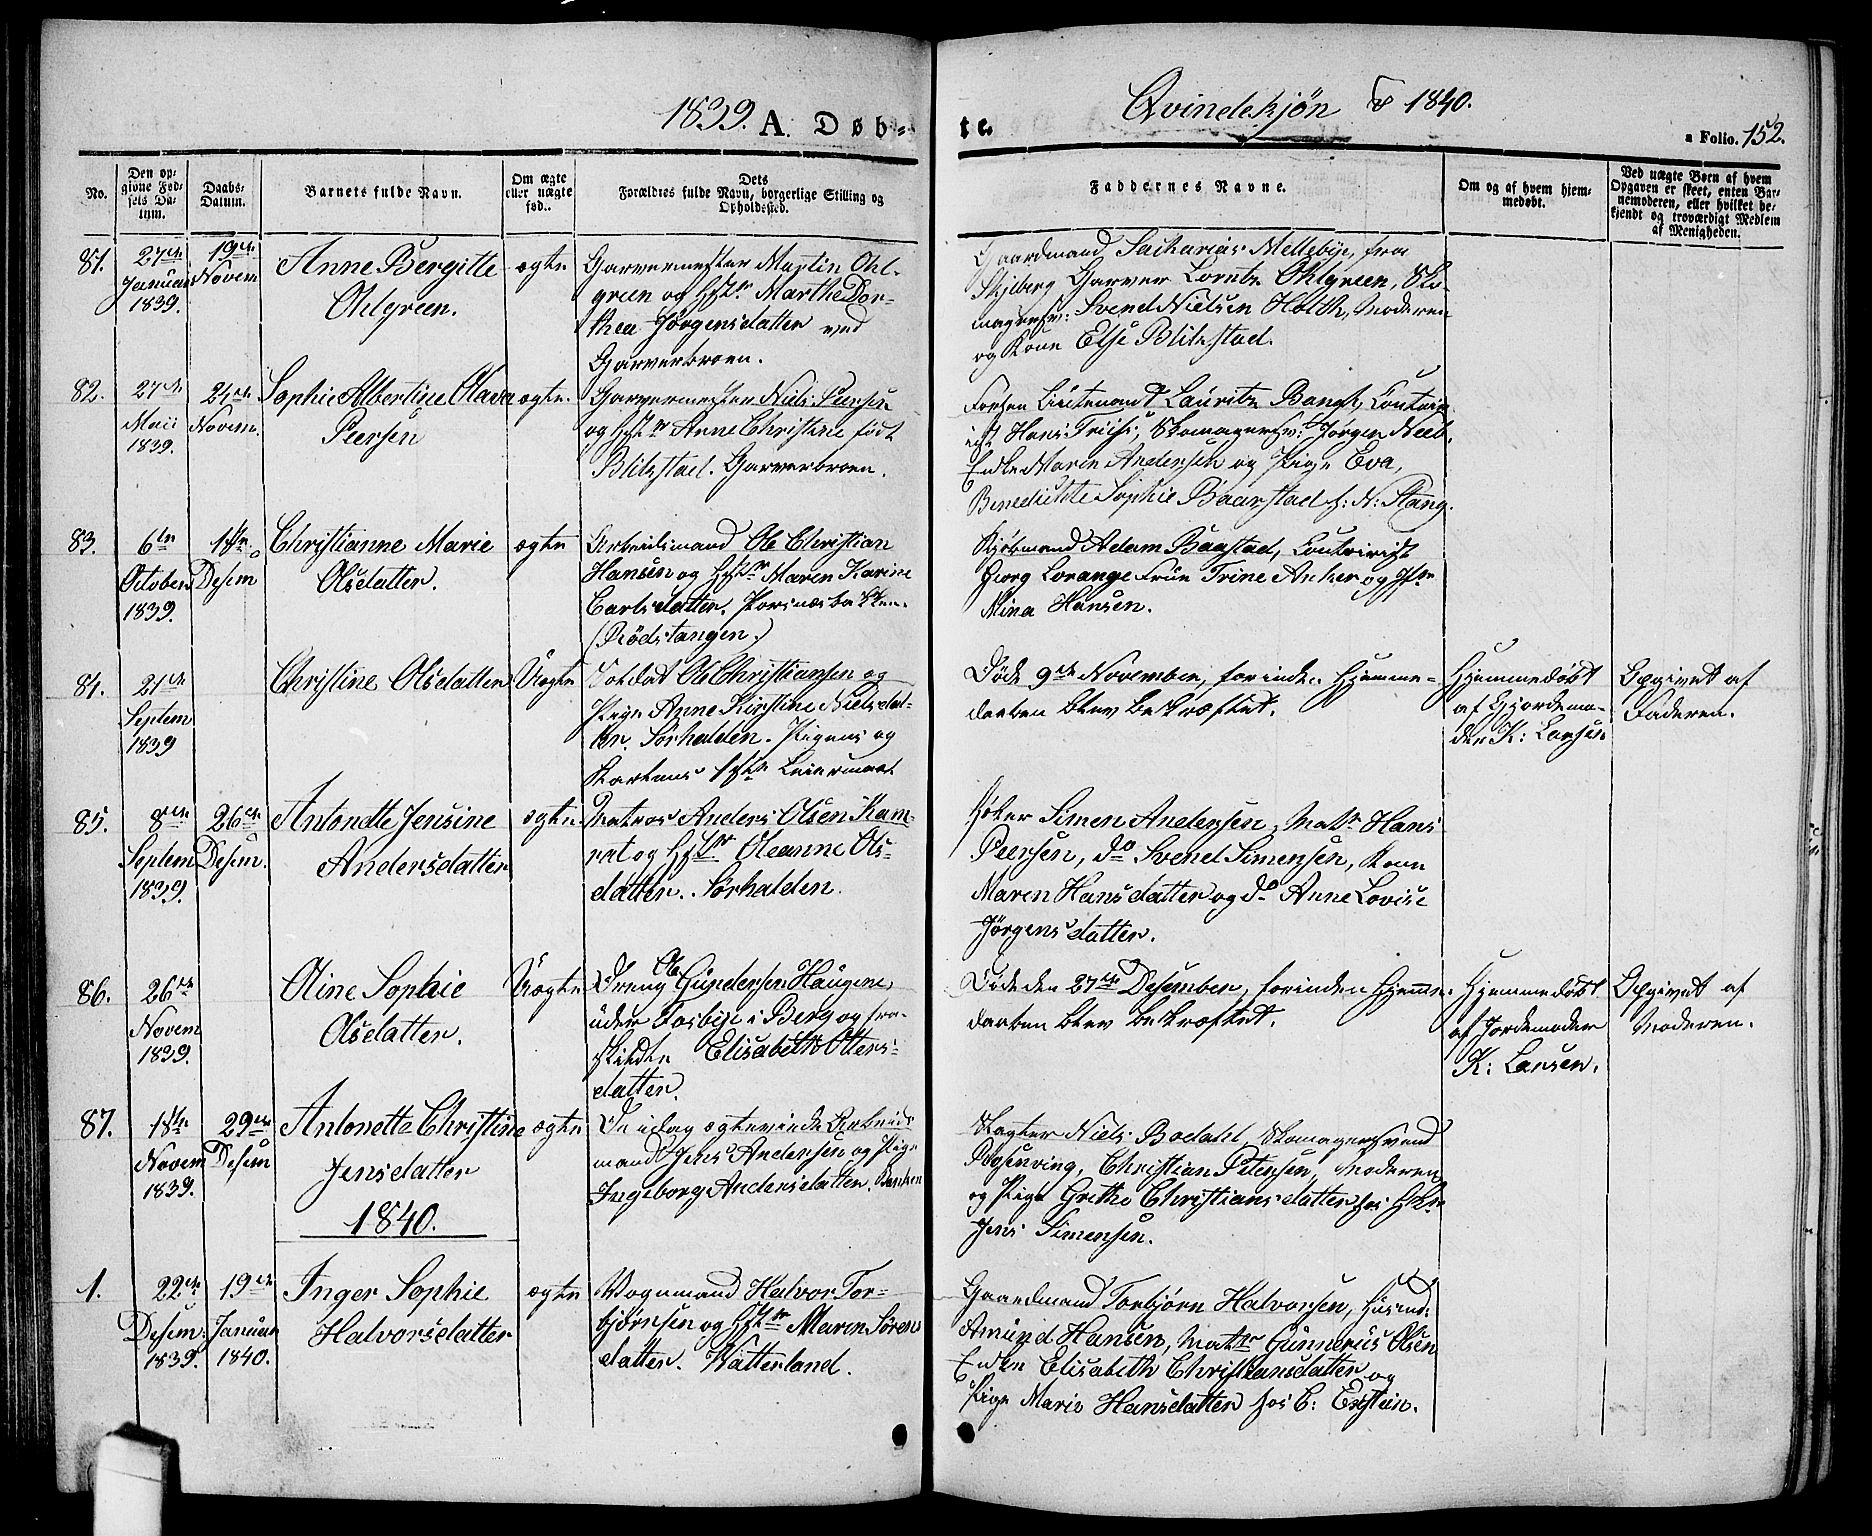 1839. A. Døb-
te. Qvindekjøn & 1840.
a Folio. 152.
No.
Den opgivne Fødsels Datum.
Daabs-Datum.
Barnets fulde Navn.
Om ægte eller uægte fød.
Dets Forældres fulde Navn, borgerlige Stilling og Opholdssted.
Faddernes Navne.
Om og af hvem hjemmedøbt.
Ved uægte Børn af hvem Opgaven er skeet, enten Barnemoderen, eller hvilket bekjendt og troværdigt Medlem af Menigheden.
81. 27de Januar 1839. 19de Novem
Anne Bergitte
Ohlgreen.
ægte
Garvermester Martin Ohl-
green og Hstr Marthe Dor-
thea Jørgensdatter ved
Garverbroen.
Gaardmand Sacharias Mellebye, fra
Skjeberg Garver Lorntz Ohlgreen, Sko-
magersv: Svend Nielsen Holth, Moderen
og Kone Else Blikstad.
82. 27de Maii 1839. 24de Novem.
Sophie Albertine Olava
Peersen
ægte.
Garvermester Niels Peersen
og Hstr Anne Christine født
Blikstad. Garverbroen.
Lieutenant Lauritz Bangh, Contoir-
ist Hans Friis, Skomagersv: Jørgen Neeb,
Enke Maren Andersen og Pige Eva,
Benedichte Sophie Baarstad h: N: Stang.
83. 6te October 1839. 1ste Desem
Christianne Marie
Olsdatter.
ægte
Arbeidsmand Ole Christian
Hansen og Hstr Maren Karine
Carlsdatter. Porsnæsbakken.
(Rødstangen.)
Kjøbmand Adam Baastad, Contoirist
Georg Lorange Frue Trine Anker og Jfr
Mina Hansen.
84. 21de Septem 1839
Christine Olsdatter
Uægte
Soldat Ole Christiansen og
Pige Anne Kirstine Nielsdat-
ter. Sørhalden. Pigens og
Karlens 1ste Leiermaal
Døde 9de November, forinden Hjemme-
daaben blev bekræftet.
Hjemmedøbt
af Gjordemo-
der K: Larsen
Opgivet af
Faderen.
85. 8de Septem 1839. 26de Desem.
Antonette Jensine
Andersdatter
ægte.
Matros Anders Olsen Kam-
rat og Hstr Oleanne Ols-
datter. Sørhalden.
Høker Simen Andersen, Matr. Hans
Peersen, do Svend Simensen, Kone
Maren Hansdatter og do Anne Lovise
Jørgensdatter.
86. 26de Novem 1839.
Oline Sophie
Olsdatter.
Uægte
Dreng Ole Gundersen Haugene,
under Fosbye i Berg og fra-
skildte Elisabeth Otters-
datter.
Døde den 27de Desember, forinden Hjemme-
daaben blev bekræftet.
Hjemmedøbt
af Jordemoder
K: Larsen.
Opgivet af
Moderen.
87. 18de Novem 1839. 29de Desem
Antonette Christine
Jensdatter
ægte
De idag ægteviede Arbeids-
mand Jens Andersen og Pige
Ingeborg Andersdatter. Banken
Slagter Niels Bodahl, Skomagersvend
Christian Petersen, Moderen
og Pige Grethe Christiansdatter hos
Jens Simensen.
1840.
1. 22de Desem: 1839. 19de Januar 1840.
Inger Sophie
Halvorsdatter
ægte
Vognmand Halvor Tor-
bjørnsen og Hstr Maren Søren
datter. Watterland.
Gaardmand Torbjørn Halvorsen, Husmd.
Amund Hansen, Matr Gunnerius Olsen
Enken Elisabeth Christiansdatter og
Pige Marie Hansdatter hos C: Eristein.